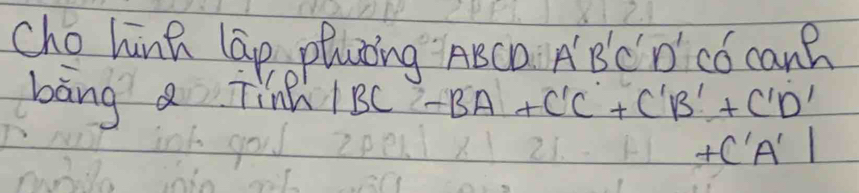 Cho hình lập phương ABCD. A'B'C'D' có canh
bằng 2. Tính |BC - BA + C'C + C'B' + C'D'
+ C'A' |